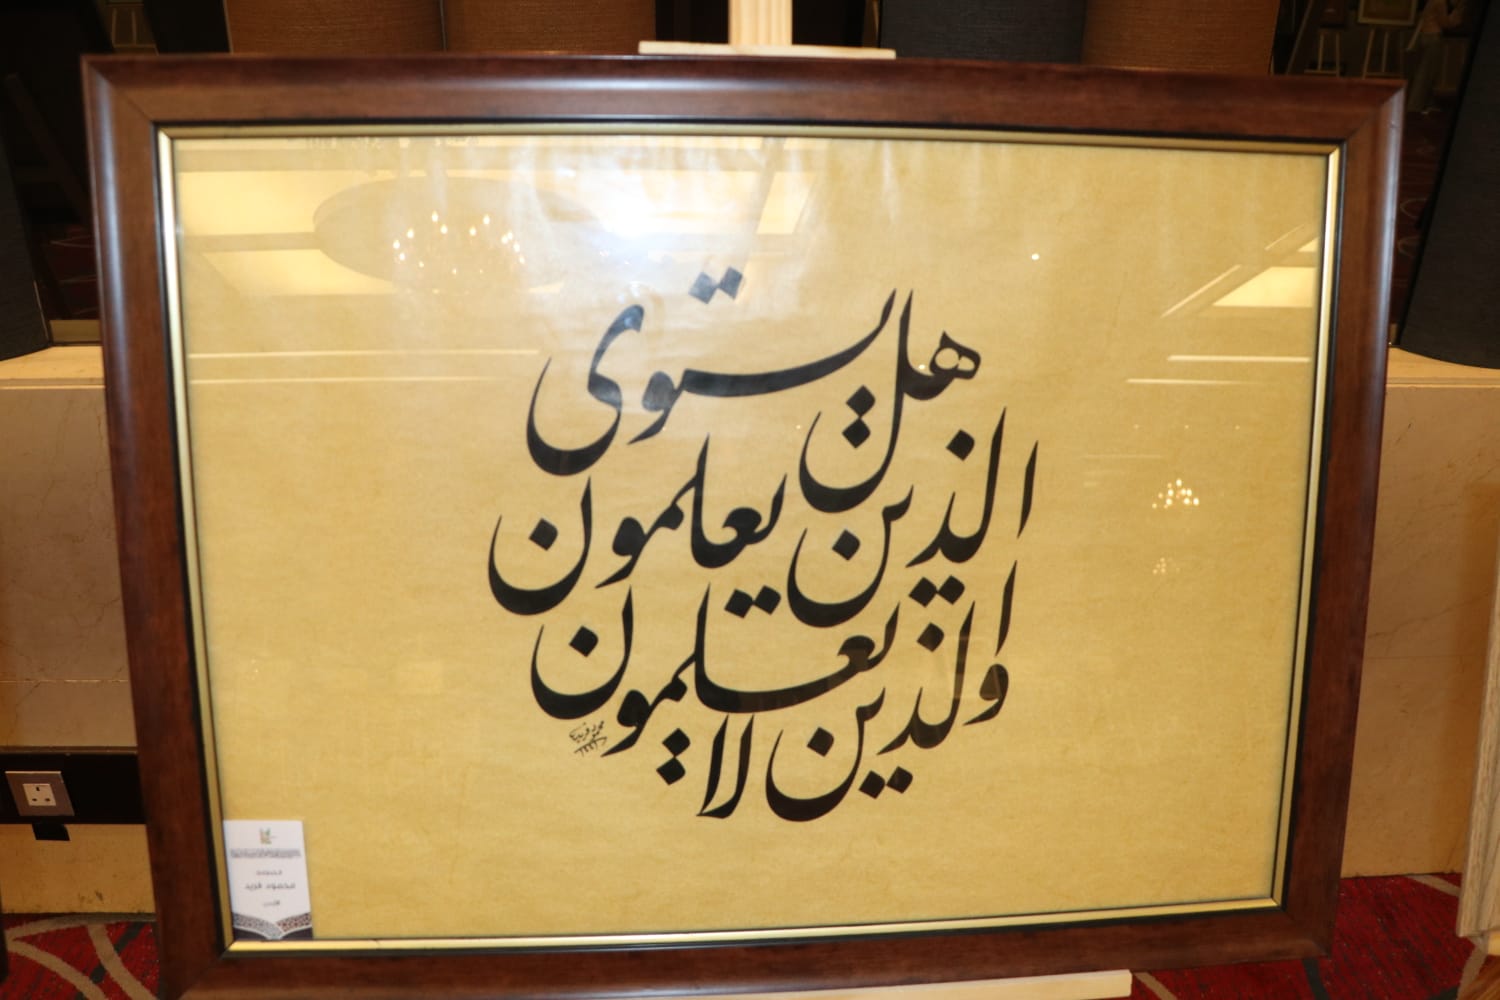 هل يستوى
الذين يعلمون
والذين لا يعلمون
محمود فريد